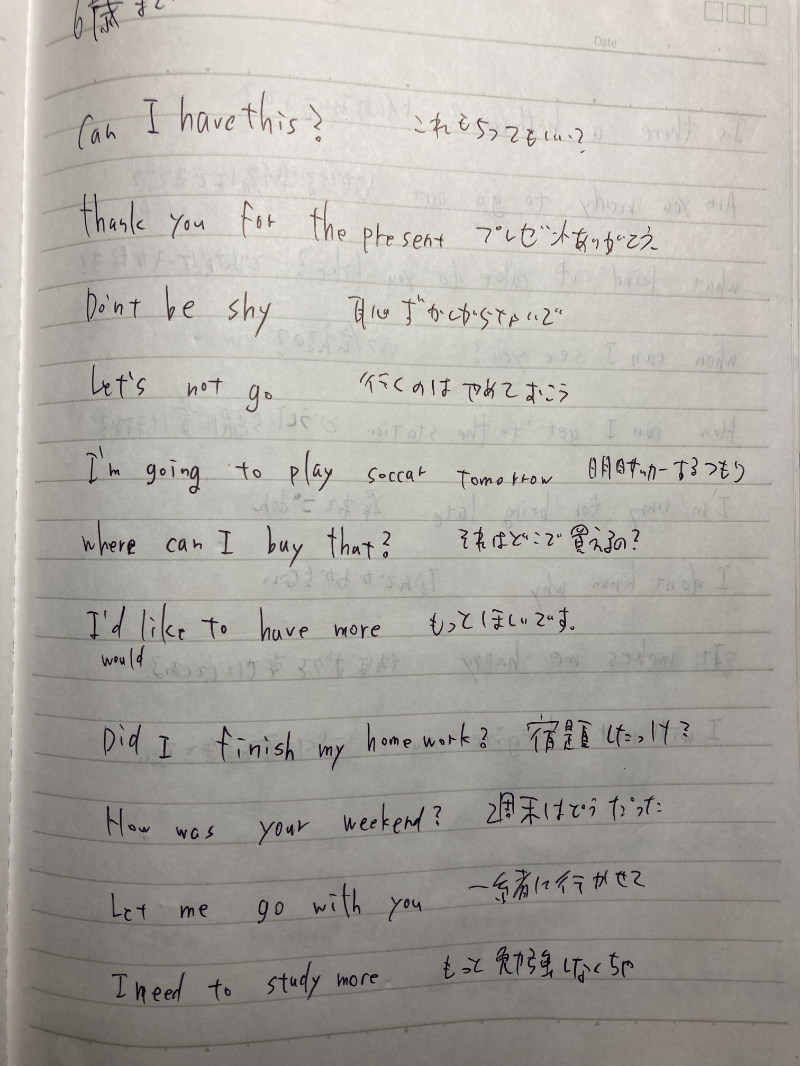 6歳まで
Date
Can I have this? これもらってもいい?
thank you for the present プレゼントありがとう
Don't be shy 恥ずかしがらないで
Let's not go 行くのはやめておこう
I'm going to play soccar tomorrow 明日サッカーするつもり
where can I buy that? それはどこで買えるの?
I'd like to have more もっとほしいです。
would
Did I finish my homework? 宿題したっけ?
How was your weekend? 週末はどうだった
Let me go with you 一緒に行かせて
I need to study more もっと勉強しなくちゃ